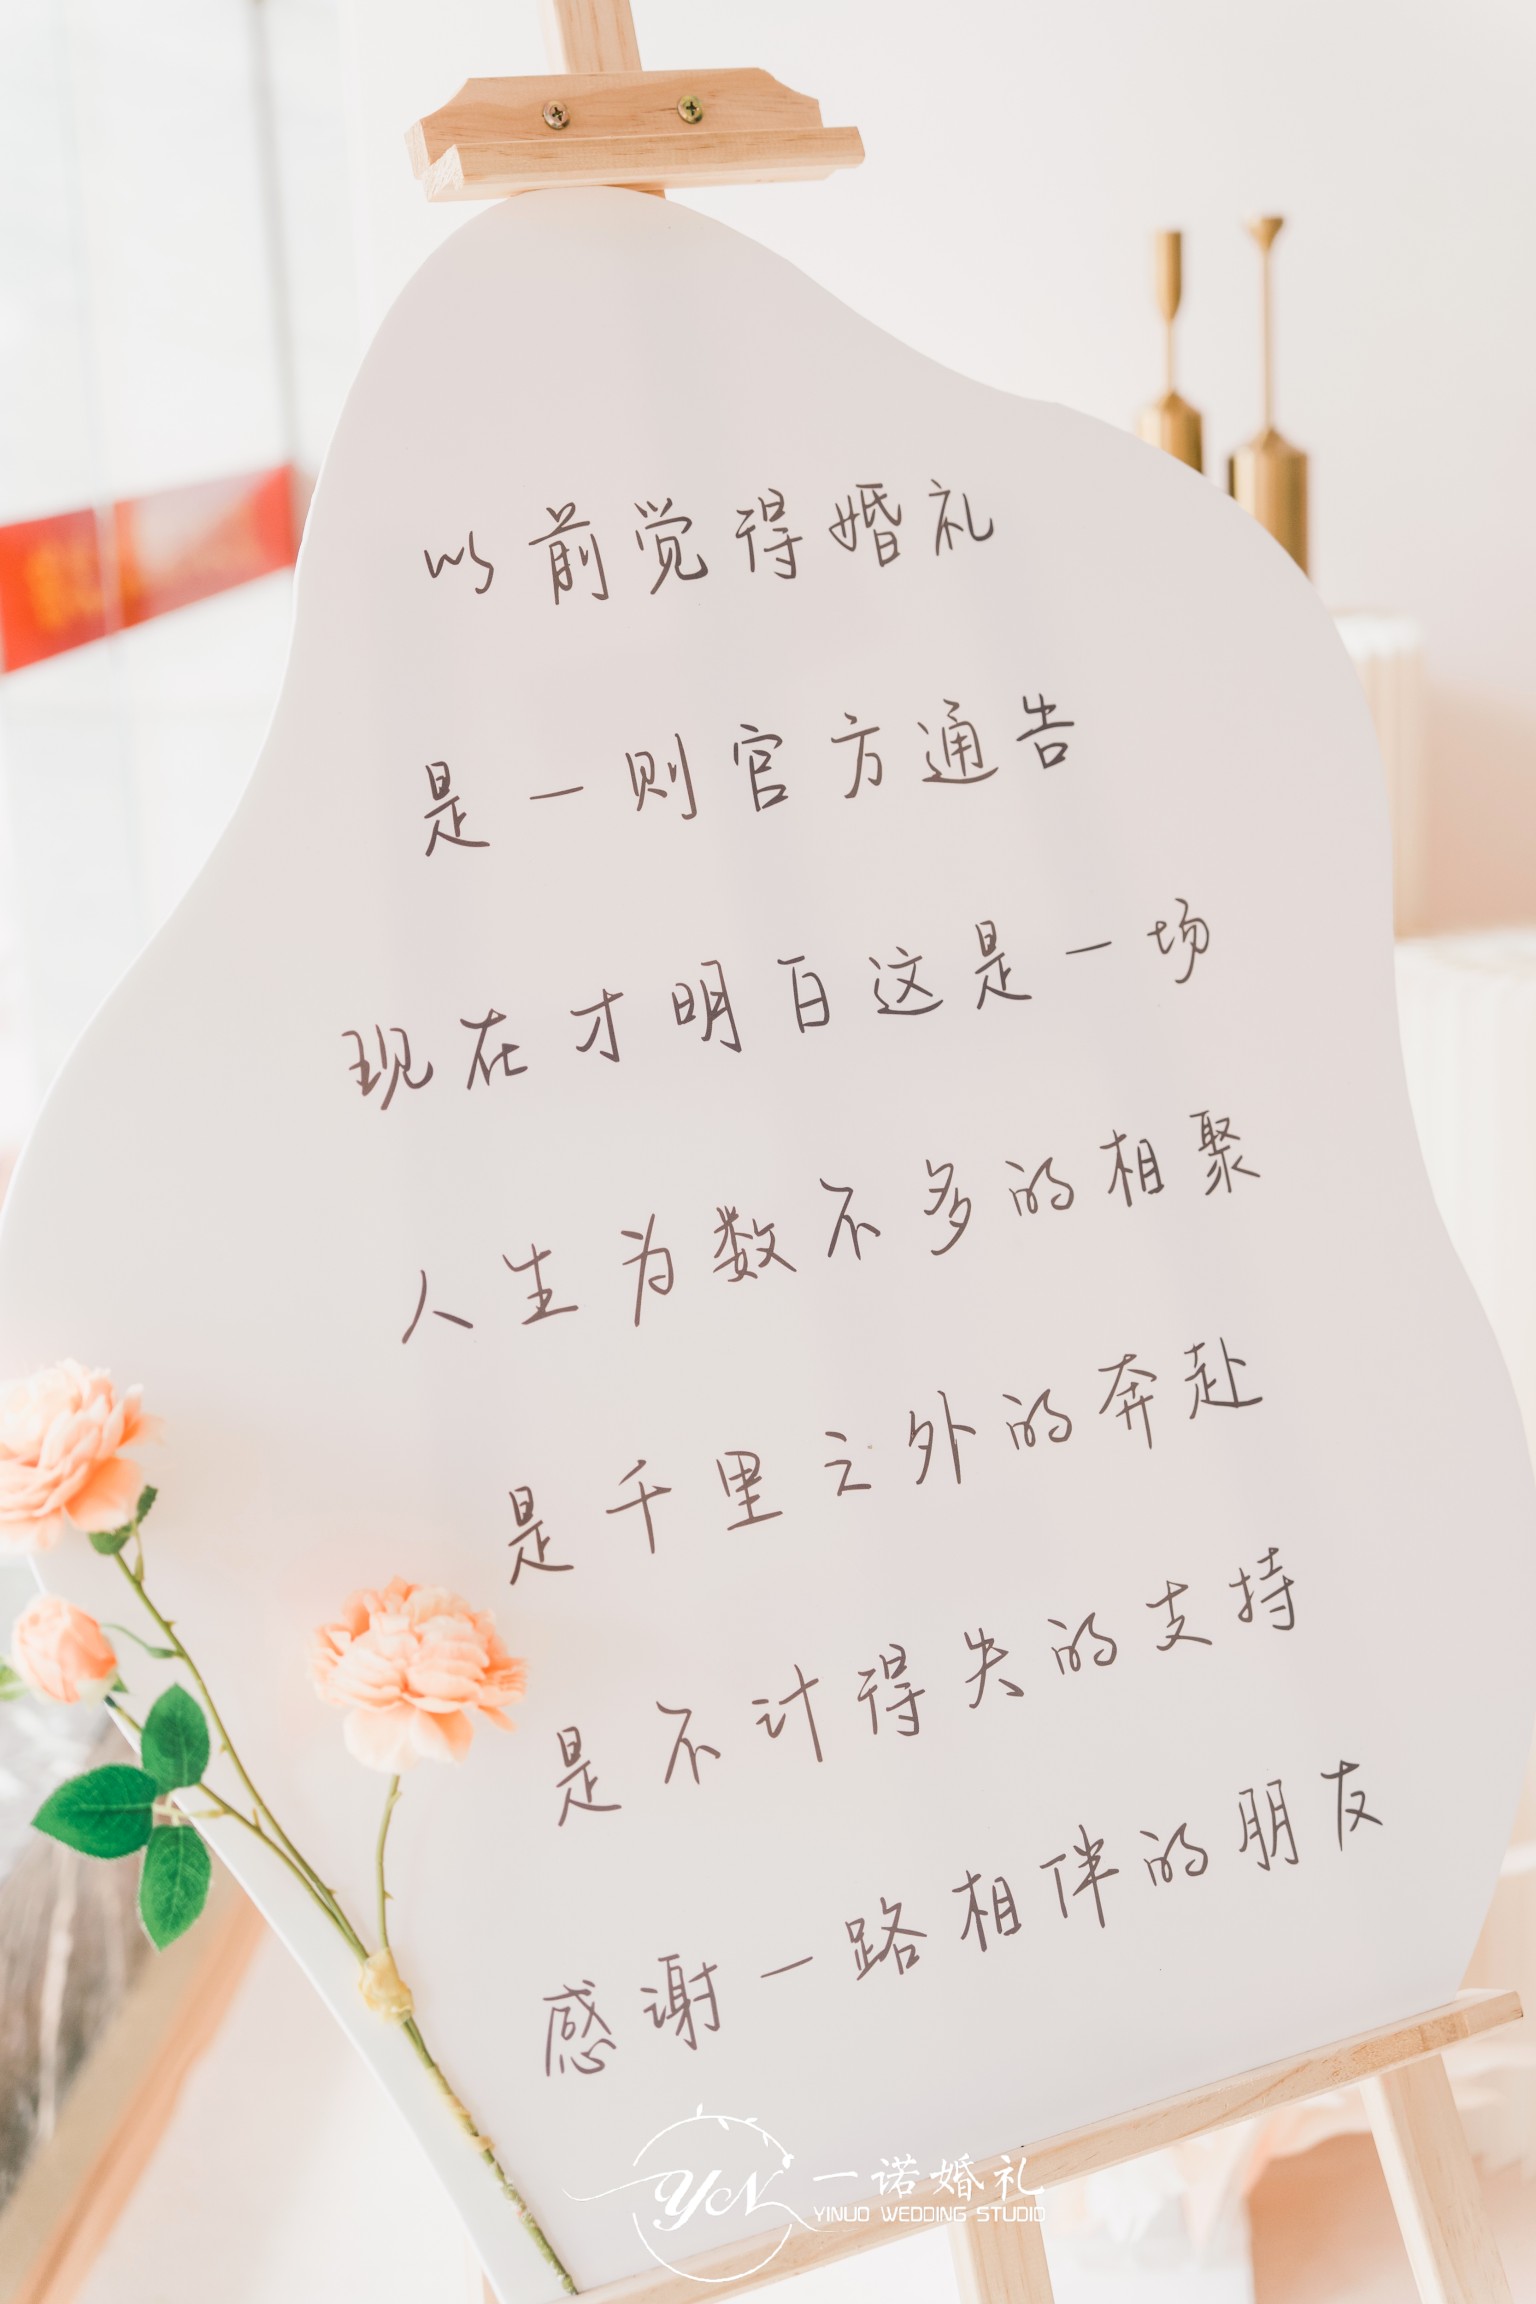 以前觉得婚礼
是一则官方通告
现在才明白这是一场
人生为数不多的相聚
是千里之外的奔赴
是不计得失的支持
感谢一路相伴的朋友
YN
一诺婚礼
YINUO WEDDING STUDIO